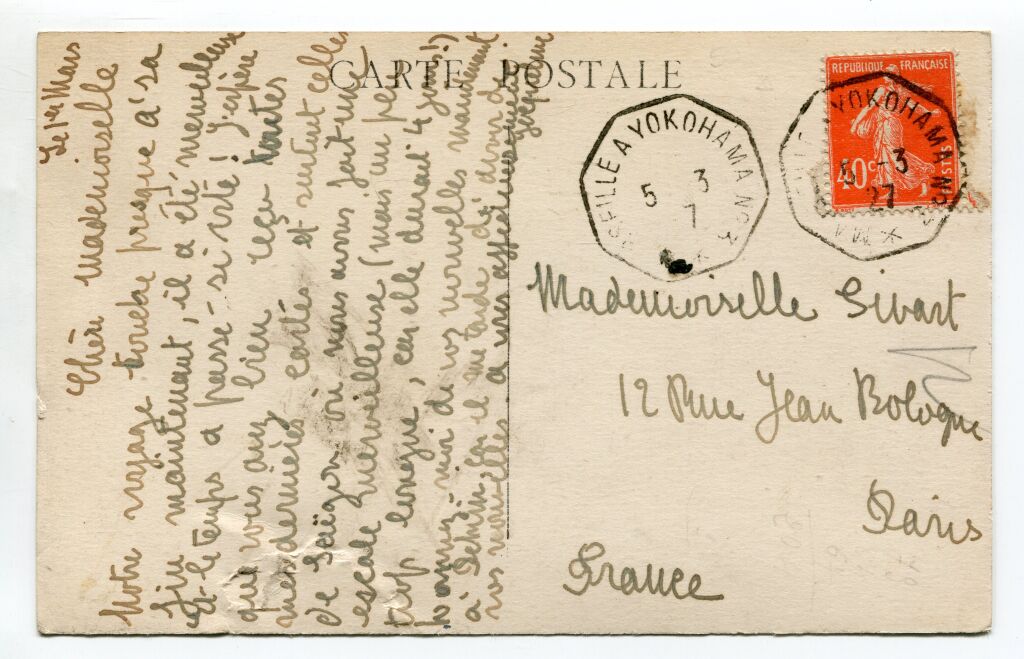 CARTE POSTALE
Le 1er Mars
Chèri Mademoiselle
Notre voyage touche presque à sa
fin maintenant, il a été merveilleuse
et le temps a passé si vite! J'espère
que vous avez bien reçu toutes
mes dernières cartes et surtout celles
de Saïgon où nous avons fait une
escale merveilleuse (mais un peu
trop longue, car elle durait 4 jours!)
à vos nouvelles maintenant
car il me tarde d'avoir de
vos nouvelles affectueusement
MARSEILLE A YOKOHAMA No
5 3
7
REPUBLIQUE FRANÇAISE
40c
POSTES
YOKOHAMA No
-3
27
Mademoiselle Sivart
12 Rue Jean Bologne
Paris
France